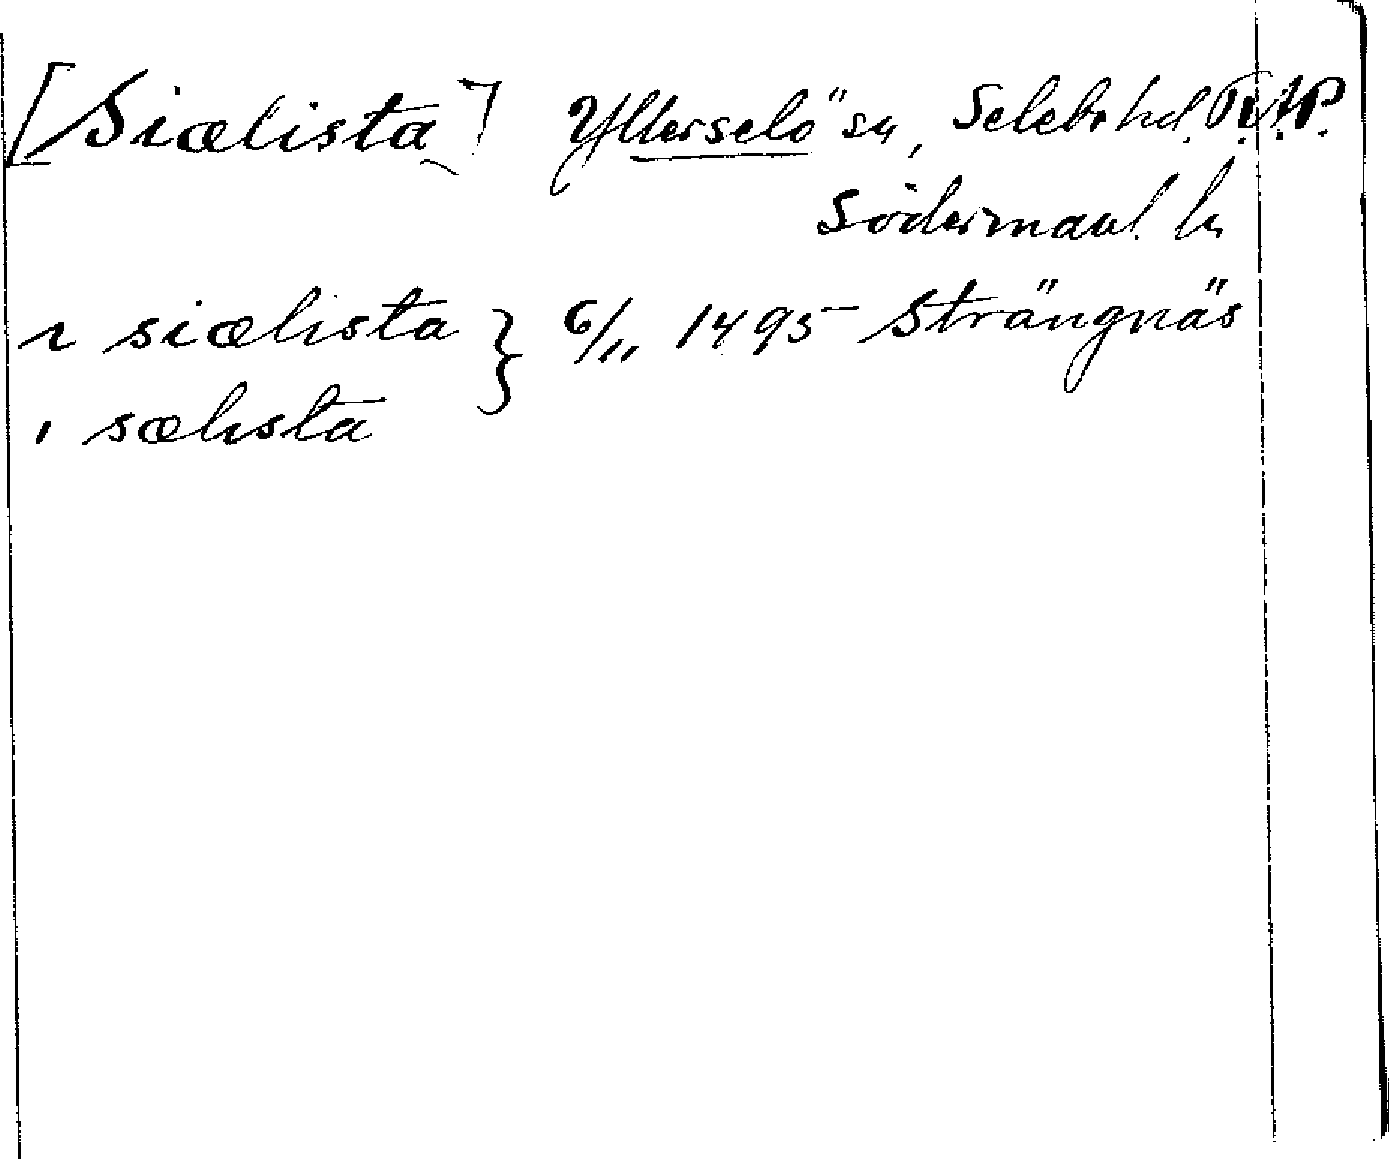 [Siælista] Ytterselö sn, Selebo hd. R.A.P.
Södermanl. ln
i siælista } 6/11 1495 Strängnäs
i sælista